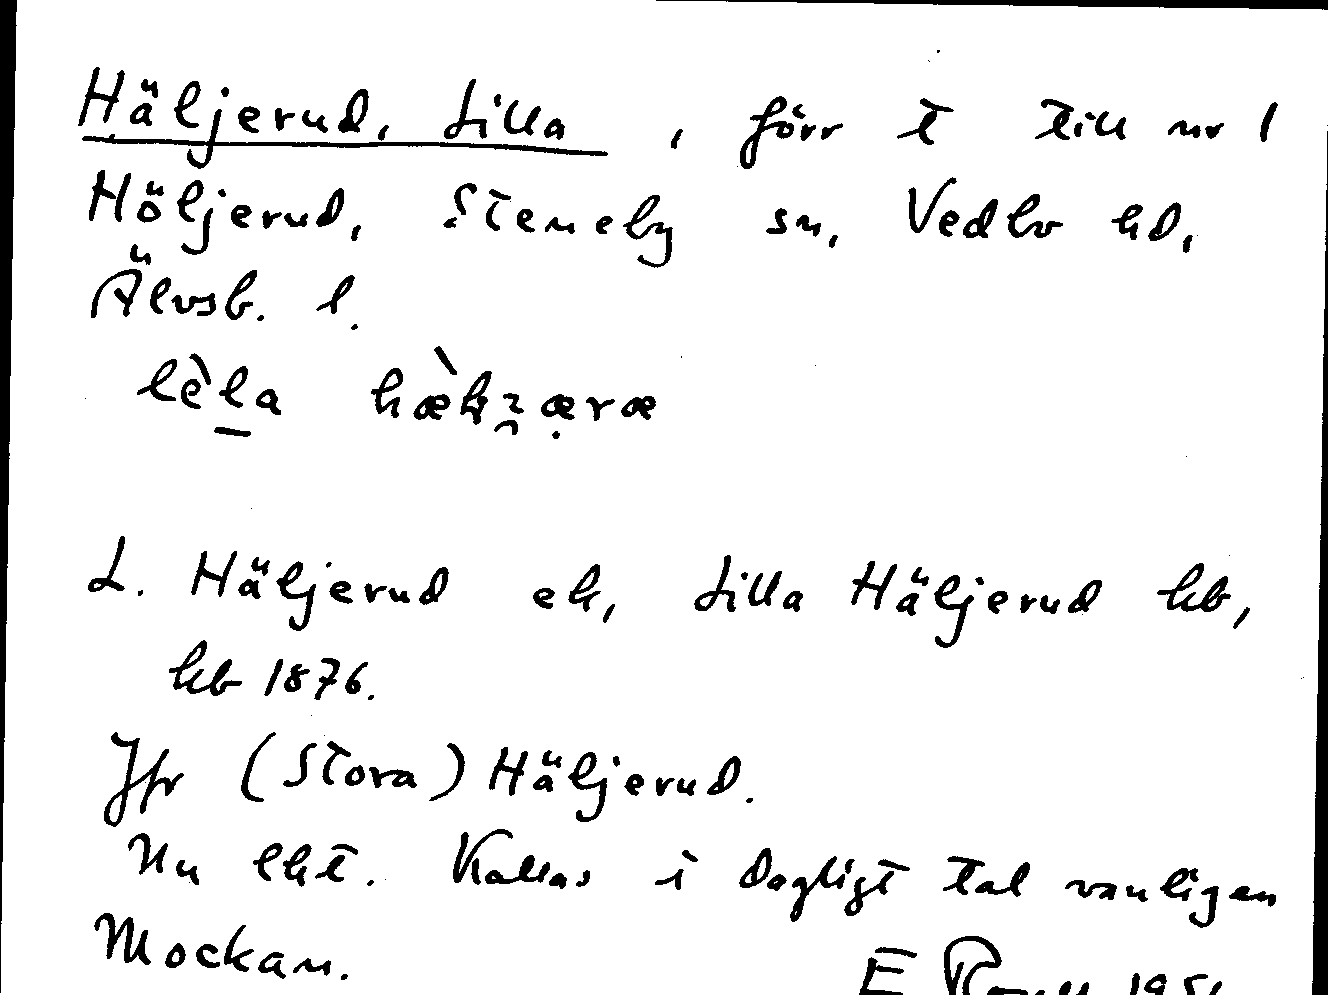 Häljerud, Lilla, förr t till nr 1
Höljerud, Steneby sn, Vedbo hd,
Älvsb. l.
lèla
L. Häljerud ek, Lilla Häljerud hb,
hb 1876.
Jfr (Stora) Häljerud.
Nu lht. Kallas i dagligt tal vanligen
Mockan.
E